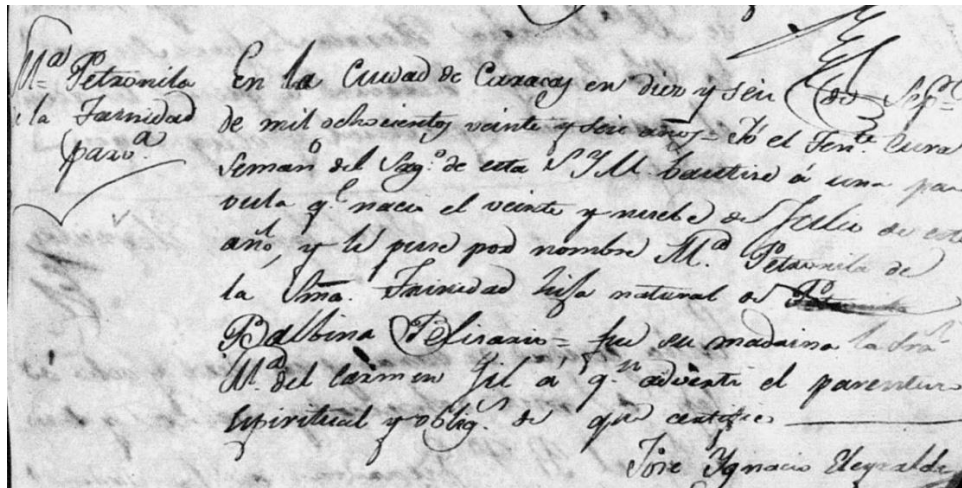 Mª Petronila
de la Trinidad
parvª
En la Ciudad de Caracas en diez y seis de Sepᵉ
de mil ochocientos veinte y seis años = Yo el Tenᵗᵉ Cura
Semanº del Sagº de esta S Y M bautise á una par
vula qᵉ nacio el veinte y nuebe de Julio de este
año, y le puse por nombre Mª Petronila de
la Sma. Trinidad hija natural de
Balbina = fue su madrina la Srª
Mª del Carmen Gil á qⁿ adverti el parentesco
espiritual y obligⁿ de que certifico
José Ygnacio